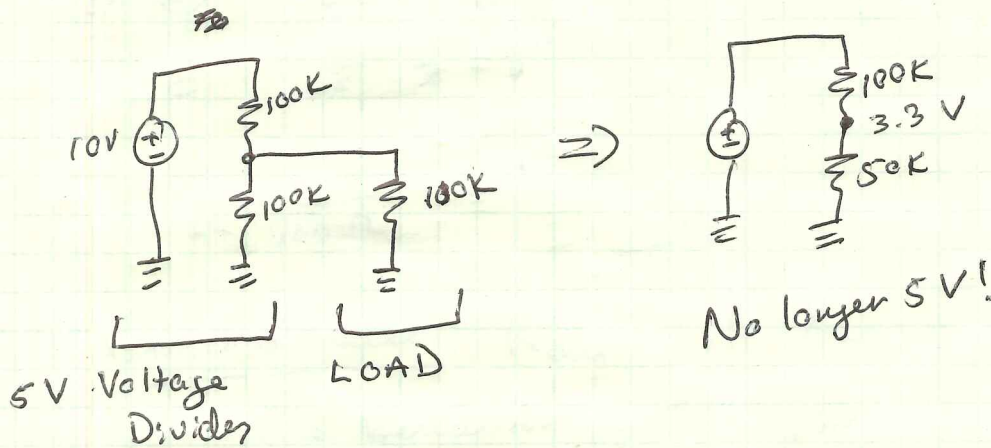 10V
100K
100K
100K
5V Voltage
Divider
LOAD
=>
100K
3.3 V
50K
No longer 5V!